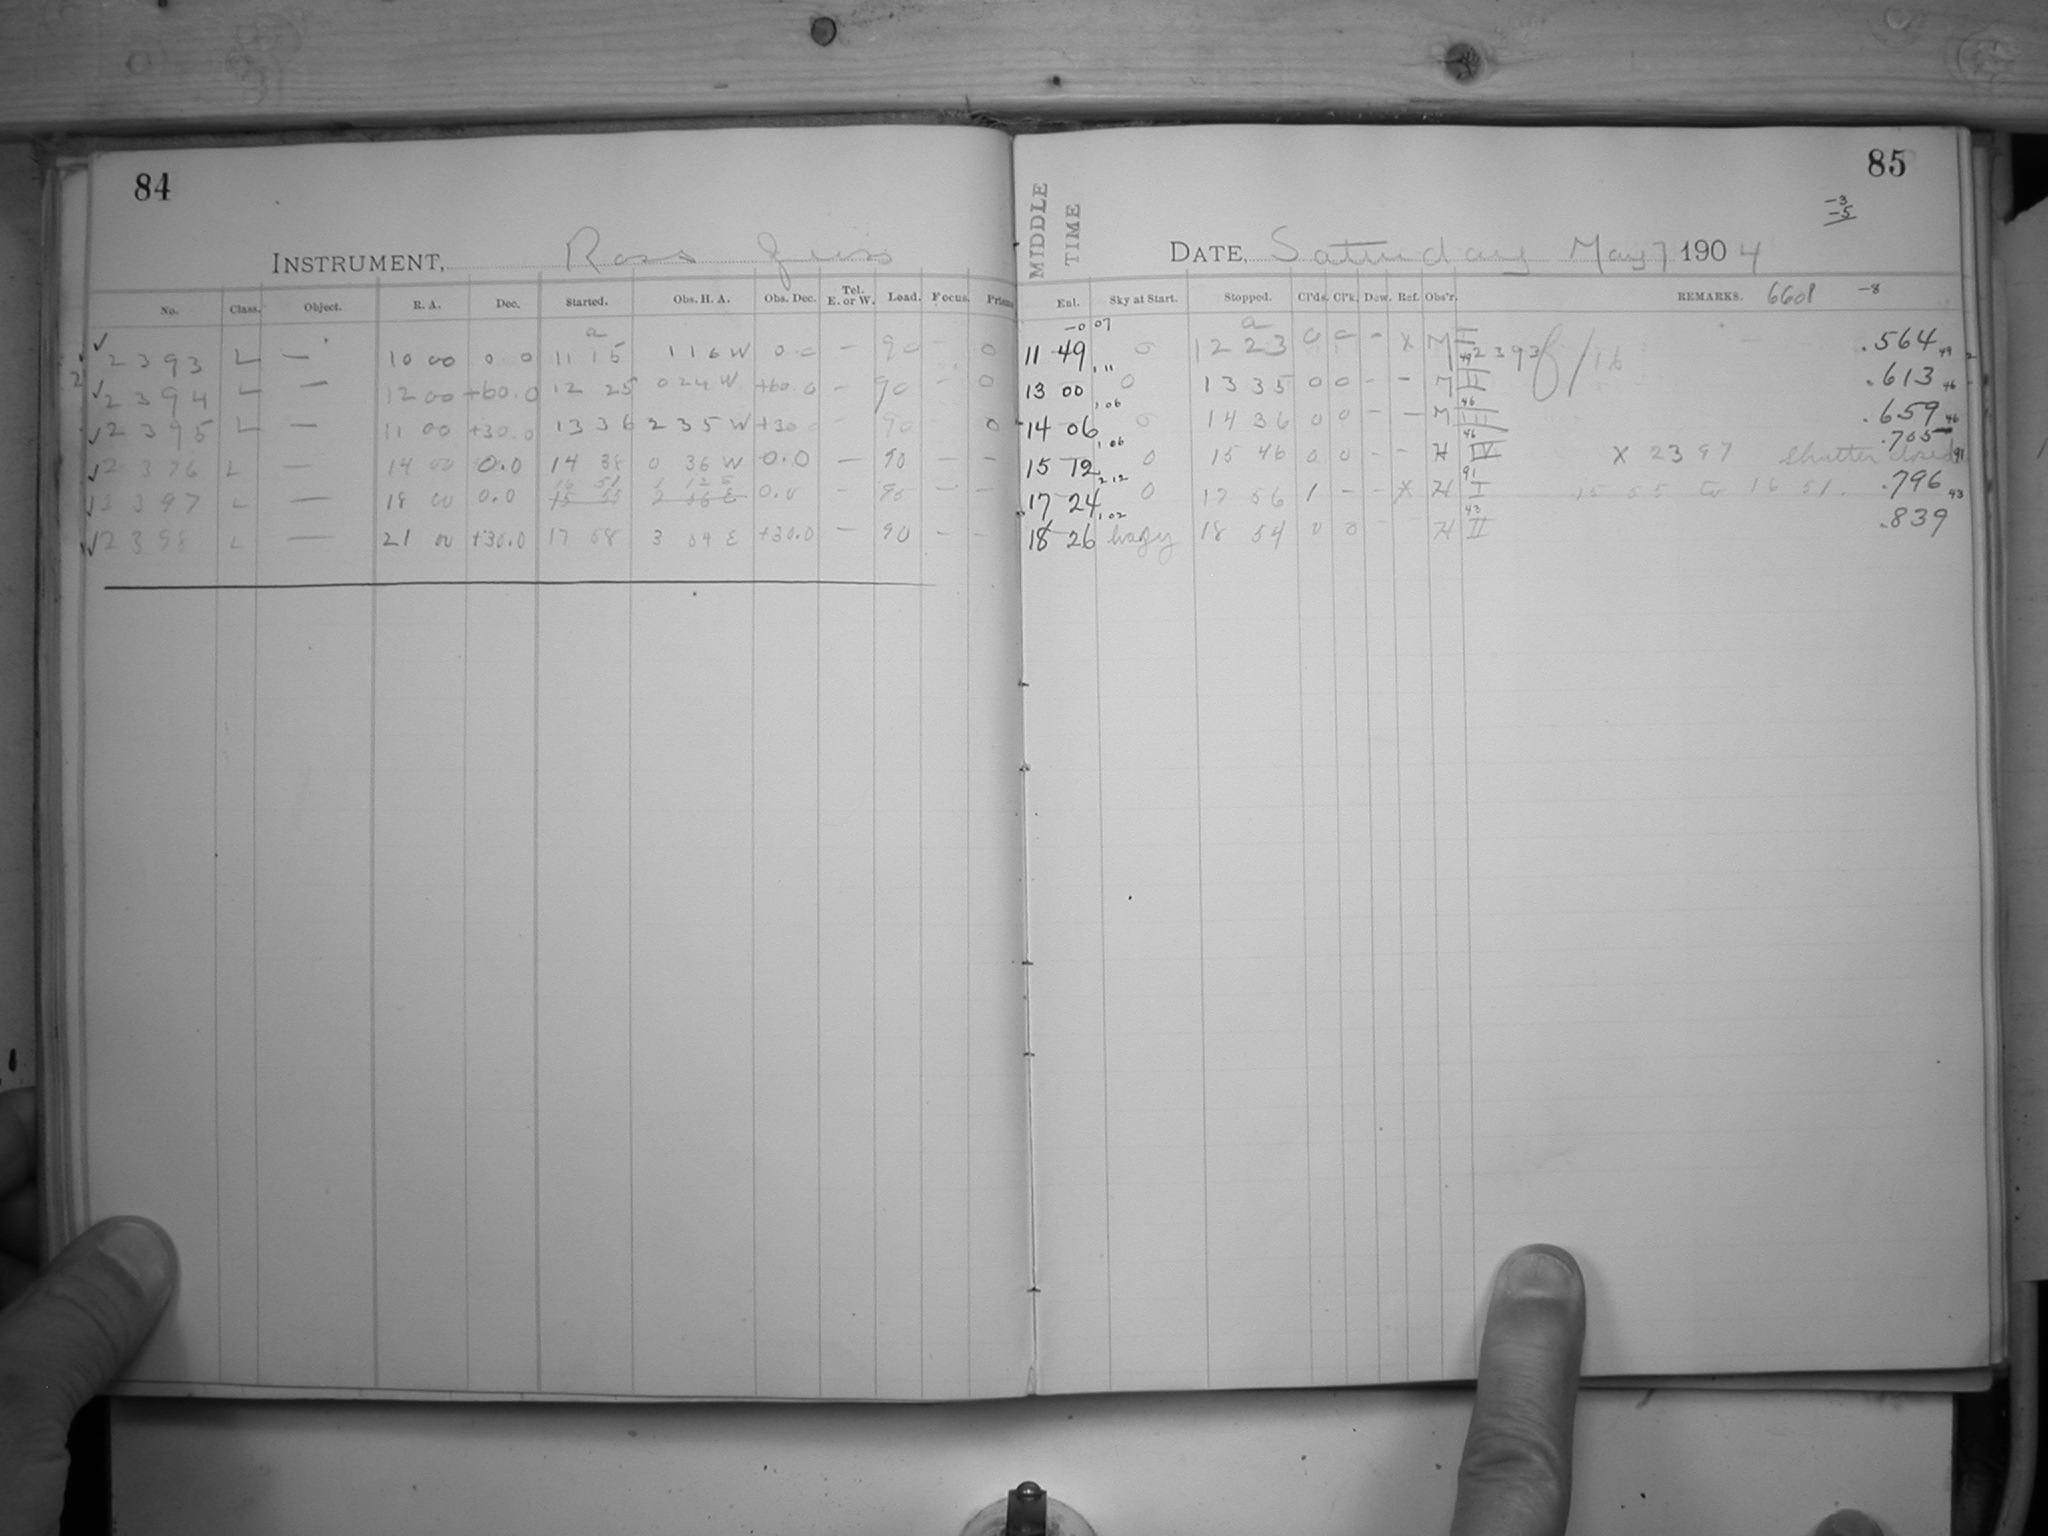 84
INSTRUMENT, Ross
No. Class. Object. R. A. Dec. Started. Obs. H. A. Obs. Dec. Tel. E. or W. Load. Focus. Prisms
a
2393 L — 10 00 0.0 11 15 1 16 W 0.0 — 90 — 0
2394 L — 12 00 +60.0 12 25 0 24 W +60.0 — 90 — 0
2395 L — 11 00 +30.0 13 36 2 35 W +30.0 — 90 — 0
2396 L — 14 00 0.0 14 38 0 36 W 0.0 — 90 — —
16 51 1 12 E
2397 L — 18 00 0.0 15 55 2 06 E 0.0 — 90 — —
2398 L — 21 00 +30.0 17 58 3 04 E +30.0 — 90 — —
85
-3
-5
MIDDLE TIME
DATE, Saturday May 7 1904
Enl. Sky at Start. Stopped. Cl'ds. Cl'k. Dew. Ref. Obs'r. REMARKS. 6601 -8
-0 07 a
11 49 0 12 23 0 0 - X M I 2393 .564 49
13 00 0 13 35 0 0 - - M II .613 46
14 06 0 14 36 0 0 - - M III .659 46
15 12 0 15 46 0 0 - - H IV X 2397 Shutter closed .705 91
17 24 0 17 56 1 - - X H I 15 55 to 16 51. .796 43
18 26 hazy 18 54 0 0 - - H II .839